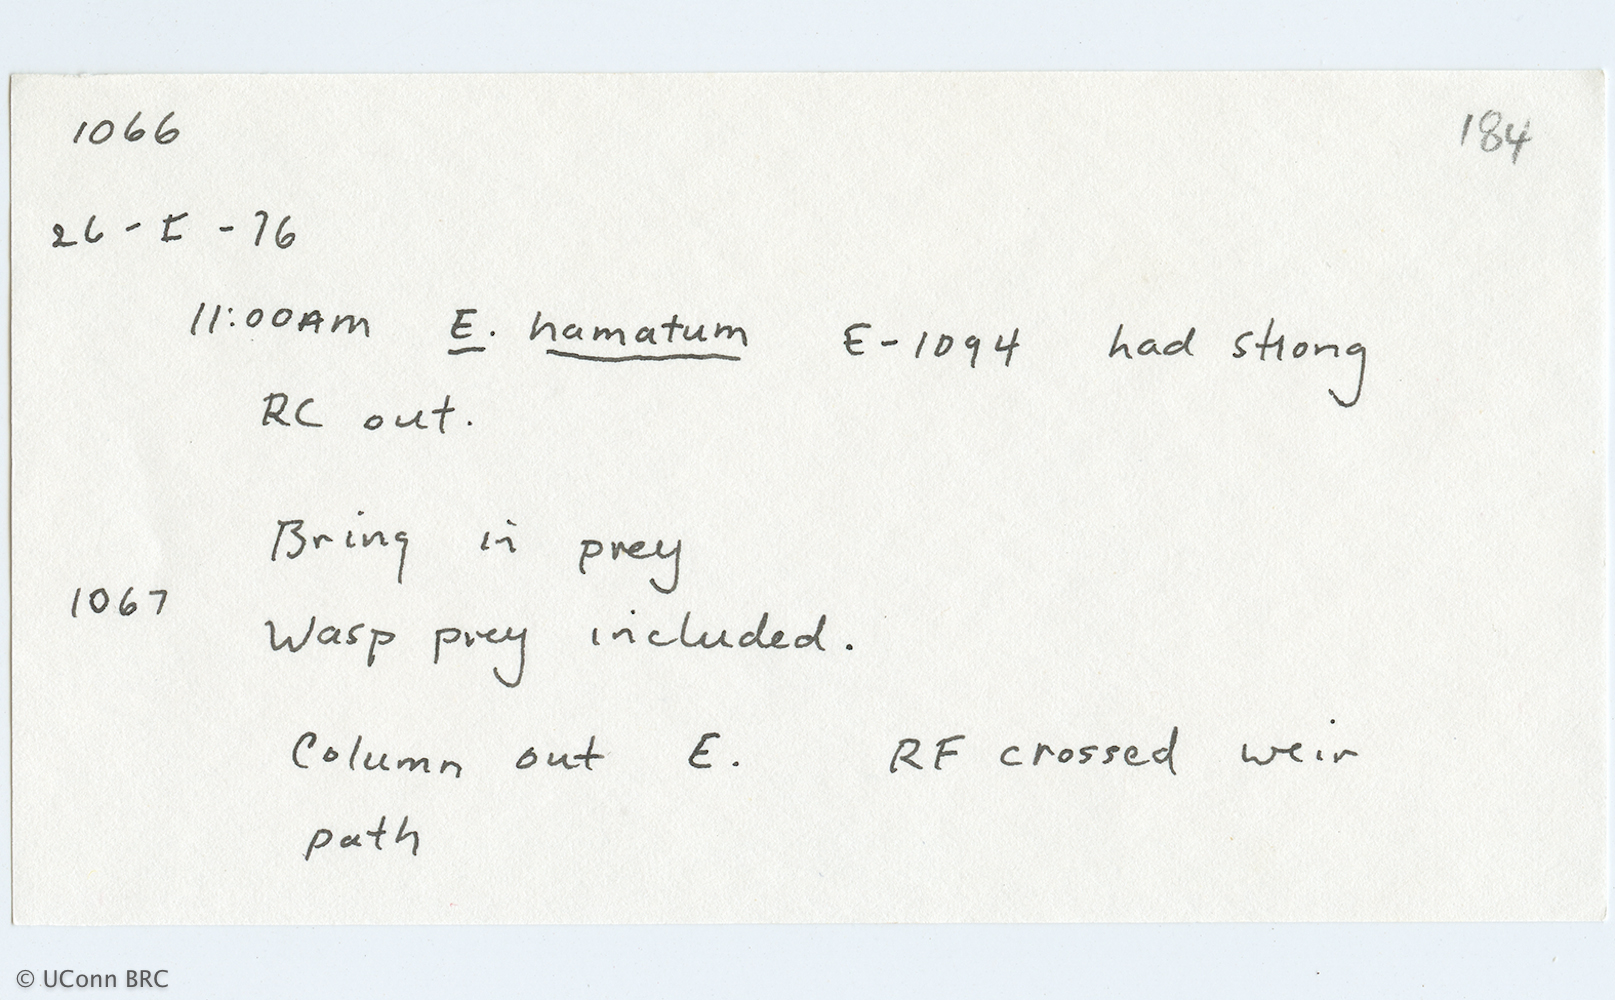 1066
184
26-I-76
11:00AM E. hamatum E-1094 had strong
RC out.
Bring in prey
1067
Wasp prey included.
Column out E. RF crossed weir
path
© UConn BRC